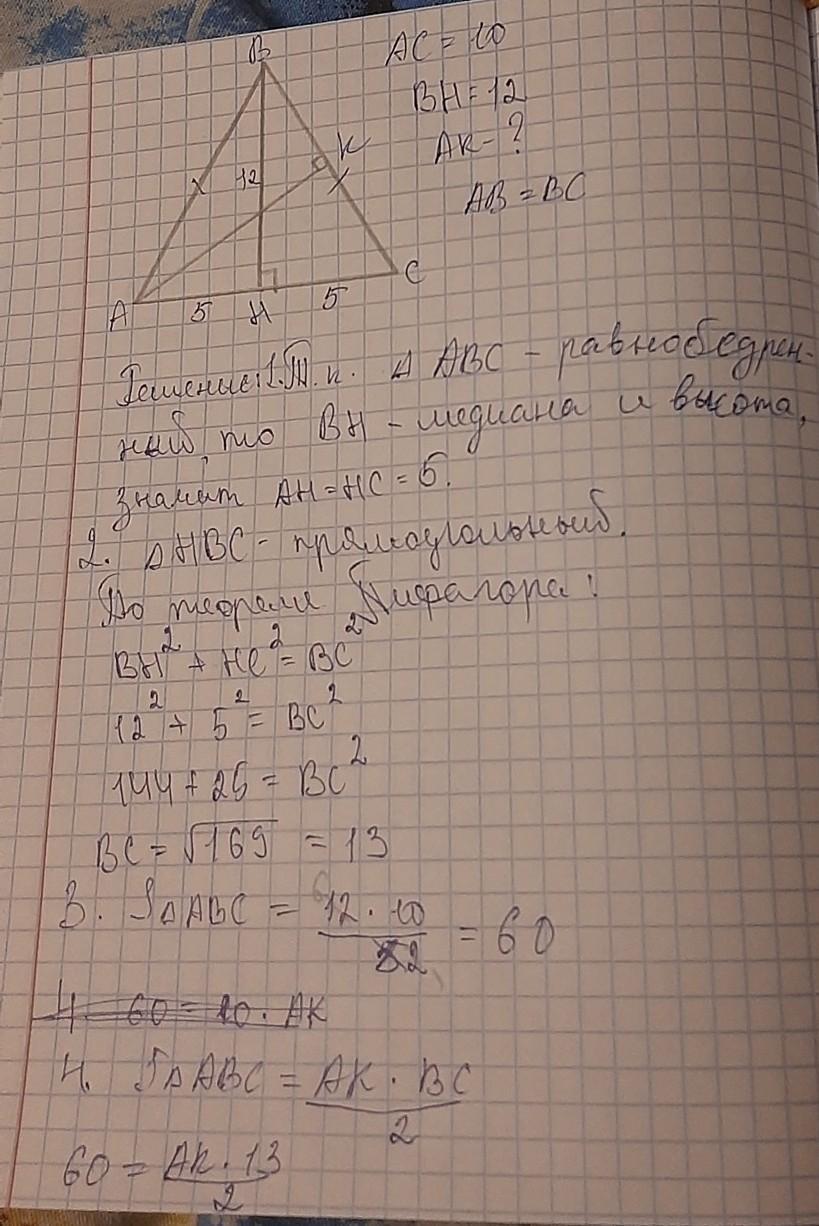 B
AC = 10
BH = 12
K
AK - ?
12
AB = BC
C
A 5 H 5
Решение: 1. Т.к. △ ABC - равнобедрен-
ный, то BH - медиана и высота,
значит AH = HC = 5.
2. △HBC - прямоугольный.
По теореме Пифагора:
BH² + HC² = BC²
12² + 5² = BC²
144 + 25 = BC²
BC = √169 = 13
3. S△ABC = 12 · 10 / 2 = 60
4. 60 = 10 · AK
4. S△ABC = AK · BC / 2
60 = AK · 13 / 2